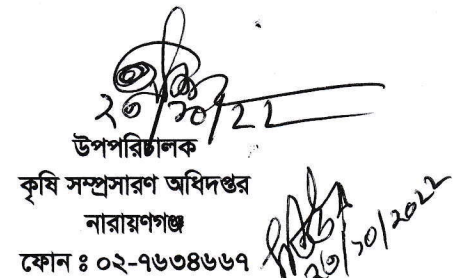 ২৩/১০/২২
উপপরিচালক
কৃষি সম্প্রসারণ অধিদপ্তর
নারায়ণগঞ্জ
ফোন ঃ ০২-৭৬৩৪৬৬৭
২৩/১০/২০২২